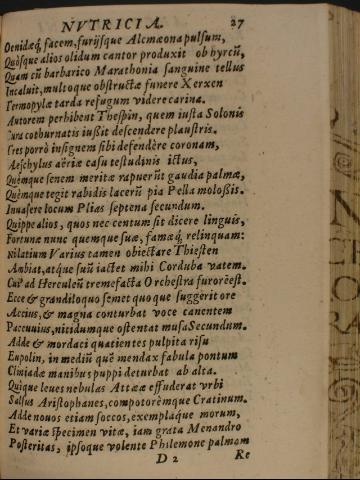 NVTRICIA. 27
Oenidæq́, facem, furijsque Alcmæona pulsum,
Quósque alios olidum cantor produxit ob hyrcū,
Quam cū barbarico Marathonia sanguine tellus
Incaluit, multoque obstructæ funere Xerxen
Termopylæ tarda refugum videre carina.
Autorem perhibent Thespin, quem iusta Solonis
Cura cothurnatis iußit descendere plaustris.
Tres porrò insignem sibi defendère coronam,
Aeschylus aëriæ casu testudinis ictus,
Quémque senem meritæ rapuerūt gaudia palmæ,
Quémque tegit rabidis lacerū pia Pella moloßis.
Inuasere locum Plias septena secundum.
Quippe alios, quos nec centum sit dicere linguis,
Fortunæ nunc quemque suæ, famæq́, relinquam:
Nilatium Varius tamen obiectare Thiesten
Ambiat, atq́ue suū iactet mihi Corduba vatem.
Cui' ad Herculeū tremefacta Orchestra furorē est.
Ecce & grandiloquo semet quoque suggerit ore
Accius, & magna conturbat voce canentem
Pacuuius, nitidumque ostentat musa Secundum.
Adde & mordaci quatientes pulpita risu
Eupolin, in mediū quē mendax fabula pontum
Cliniadæ manibus puppi deturbat ab alta.
Quique leues nebulas Attææ effuderat vrbi
Salsus Aristophanes, compotorémque Cratinum.
Adde nouos etiam soccos, exemplaq́ue morum,
Et variæ specimen vitæ, iam grata Menandro
Posteritas, ipsoque volente Philemone palmam
D 2 Re